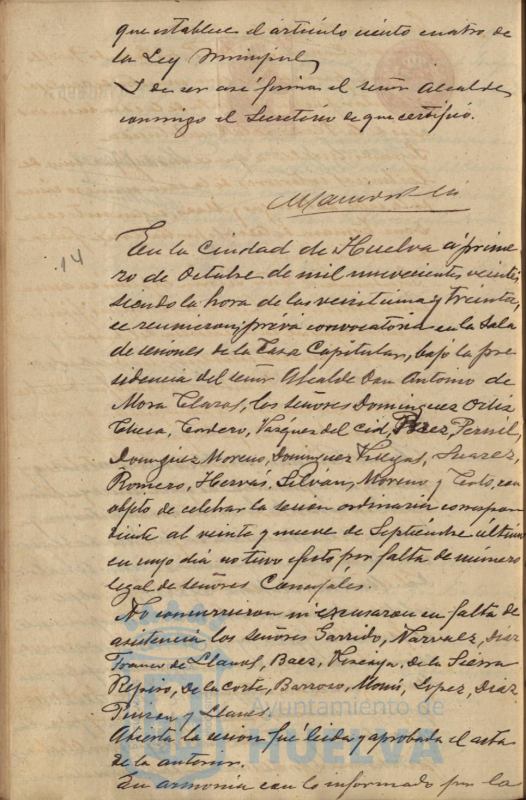 que establece el artículo ciento cuatro de
la Ley Municipal,
Y de ser así firma el señor Alcalde
conmigo el Secretario de que certifico.
14
En la ciudad de Huelva á prime
ro de Octubre de mil novecientos veinte,
siendo la hora de las veintiuna y treinta,
se reunieron, prévia convocatoria en la Sala
de sesiones de la Casa Capitular, bajo la pre
sidencia del señor Alcalde Don Antonio de
Mora Claros, los señores Dominguez Ortiz,
Checa, Cordero, Vazquez del Cid, Perez, Pernil,
Dominguez Moreno, Dominguez Villegas, Suarez,
Romero, Hervás, Silván, Moreno y Coto, con
objeto de celebrar la sesion ordinaria correspon
diente al veinte y nueve de Septiembre último
en cuyo dia no tuvo efecto por falta de número
legal de señores Concejales.
No concurrieron ni escusaron su falta de
asistencia los señores Garrido, Narvaez, Diaz
Franco de Llanos, Baez, de la Sierra
Repiso, De la Corte, Barroso, Monís, Lopez, Diaz
Pinzon y Llanes.
Abierta la sesion fué leida y aprobada el acta
de la anterior.
En armonía con lo informado por la
Ayuntamiento de
HUELVA